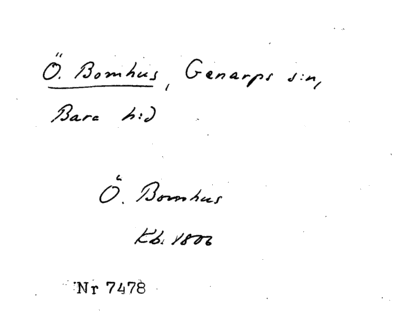 Ö. Bomhus, Genarps s:n,
Bara h:d
Ö. Bomhus
Kb. 1806
Nr 7478